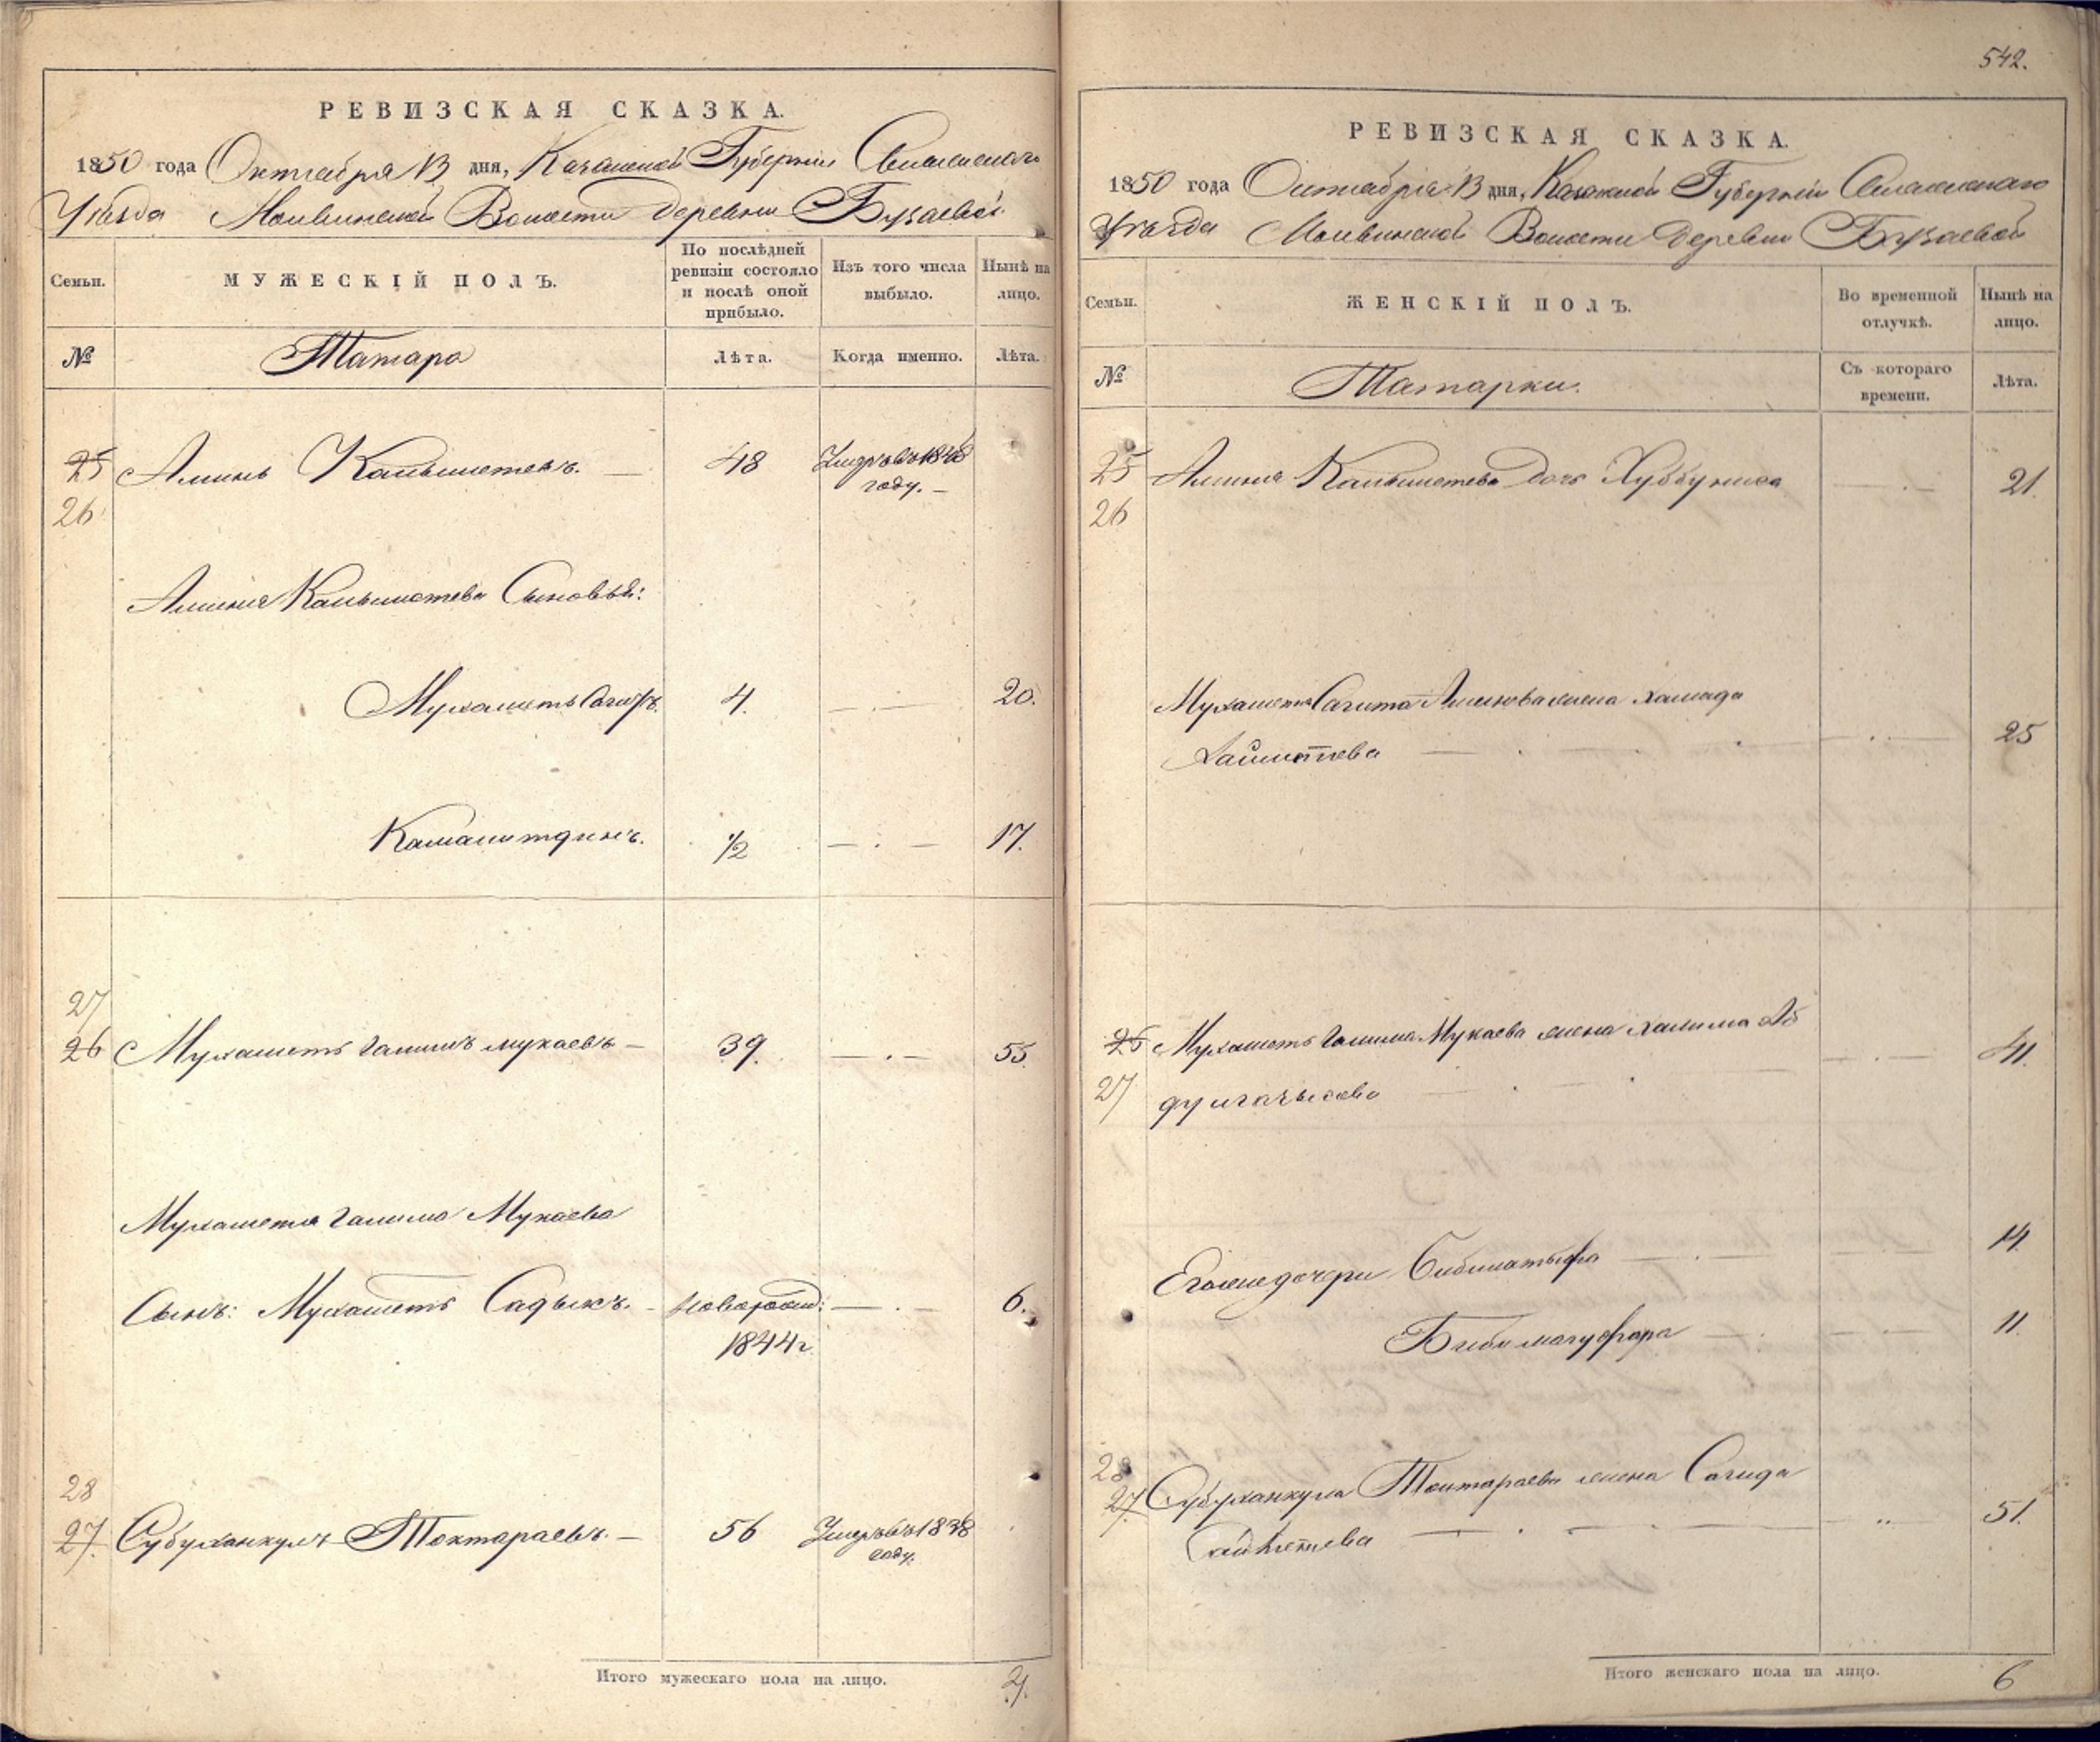 РЕВИЗСКАЯ СКАЗКА.
1850 года Октября 13 дня, Казанской Губернии Спасскаго
Уѣзда Волости деревни Бураевой.
Семьи.
МУЖЕСКІЙ ПОЛЪ.
По послѣдней
ревизіи состояло
и послѣ оной
прибыло.
Изъ того числа
выбыло.
Нынѣ на
лицо.
№
Татара
Лѣта.
Когда именно.
Лѣта.
25 Аминь 48 Умеръ въ 1848
26 году.
Аминя Сыновья:
Мухаметь Сагитъ. 4. 20.
Камалитдинъ. 1/2 17.
27
26 Мухаметь Галимъ Мукаевъ 39. 55.
Мухаметя Галима Мукаева
Сынъ: Мухаметь Садыкъ. новорожд: 6.
1844 г.
28
27. Субуханкулъ Токтараевъ. 56 Умеръ въ 1838
году.
Итого мужескаго пола на лицо. 4.
542.
РЕВИЗСКАЯ СКАЗКА.
1850 года Октября 13 дня, Казанской Губерніи Спасскаго
Уѣзда Волости деревни Бураевой
Семьи.
ЖЕНСКІЙ ПОЛЪ.
Во временной
отлучкѣ.
Нынѣ на
лицо.
№
Татарки.
Съ котораго
времени.
Лѣта.
25 Аминя Дочь Хуббуниса 21.
26
Мухаметь Сагита Аминова жена Хамида
25
26 Мухаметь Галима Мукаева жена Халима Аб 41.
27
Его же дочери 14.
Биби магуфара 11.
28
27 Субуханкула Токтараева жена Сагида
51.
Итого женскаго пола на лицо. 6